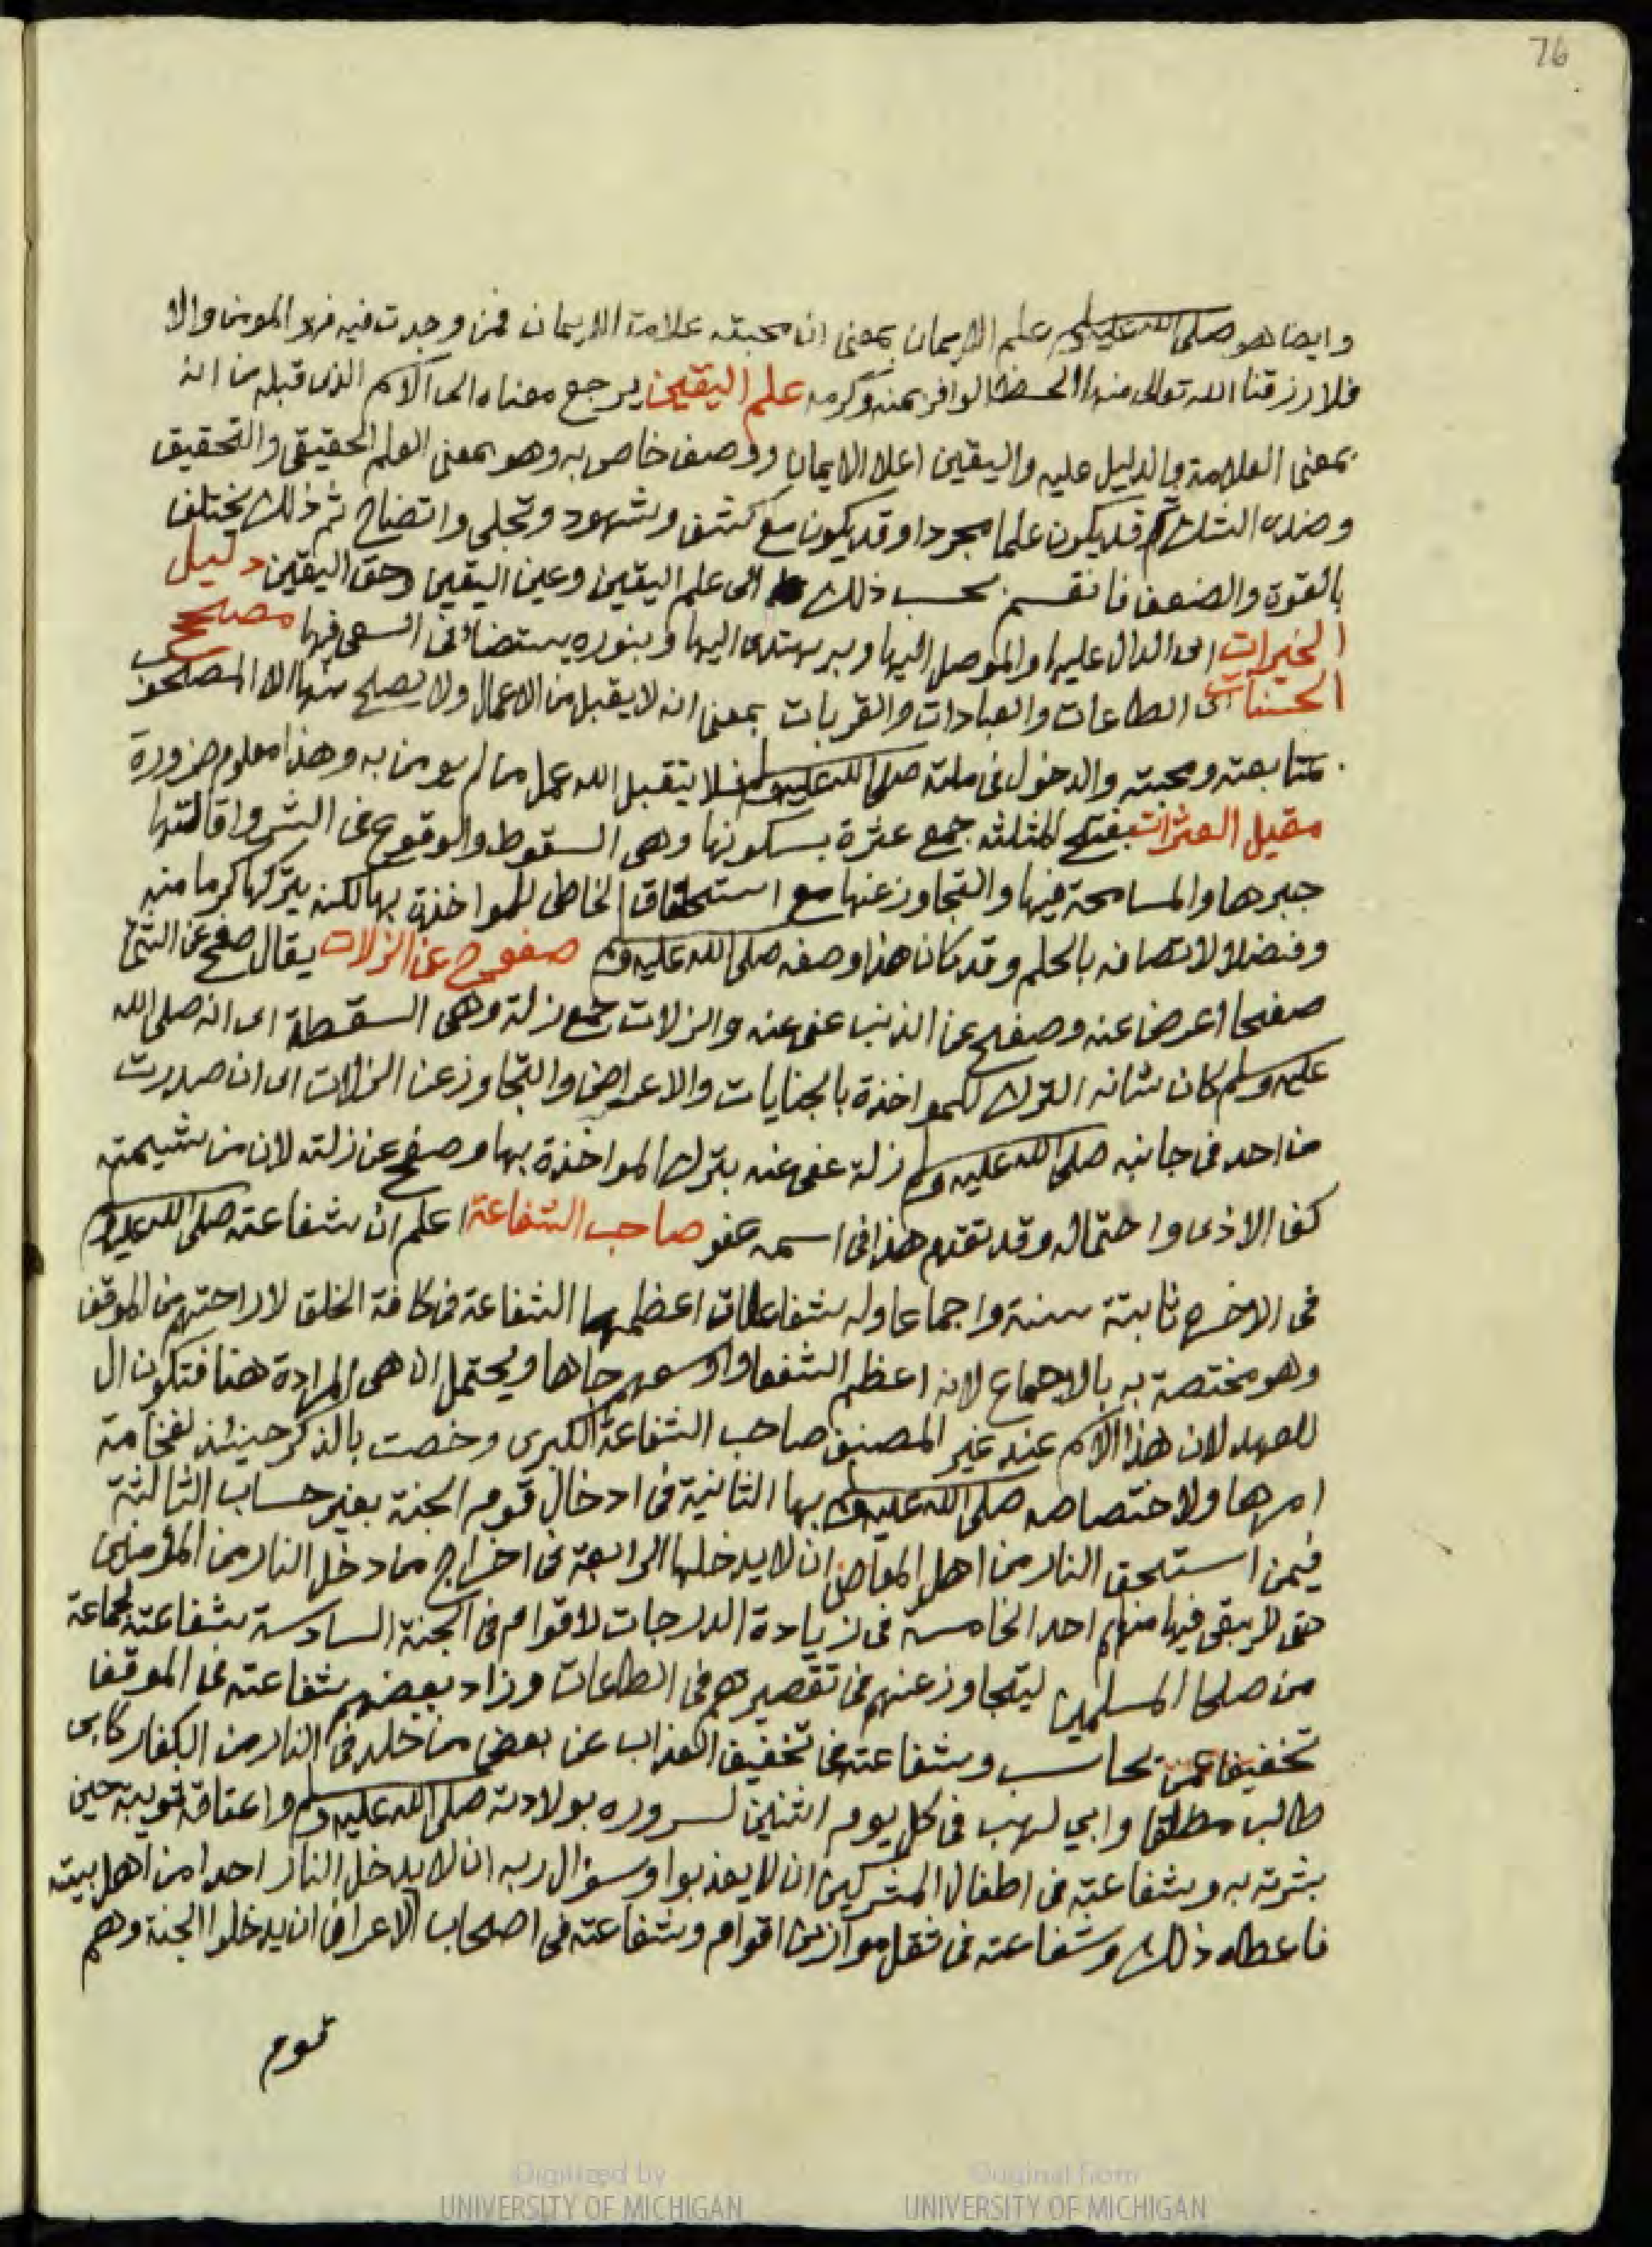 76
وايضا هو صلى الله عليه وسلم علم الايمان بمعنى ان محبته علامة الايمان فمن وجدت فيه فهو المومن والا
فلا رزقنا الله تعالى منها الحظ الوافر بمنه وكرمه علم اليقين يرجع معناه الى الاسم الذى قبله من انه
بمعنى العلامة والدليل عليه واليقين اعلا الايمان ووصف خاص به وهو بمعنى العلم الحقيقي والتحقيق
وضده الشك ثم قد يكون علما مجردا وقد يكون مع كشف وشهود وتجلى واتضاح ثم ذلك يختلف
بالقوة والضعف فانقسم بحسب ذلك الى علم اليقين وعين اليقين وحق اليقين دليل
الخيرات اى الدال عليها والموصل اليها وبه يهتدى اليها وبنوره يستضا فى السعى فيها مصحح
الحسنات اى الطاعات والعبادات والقربات بمعنى انه لا يقبل من الاعمال ولا يصلح منها الا المصحوب
بمتابعته ومحبته والدخول فى ملته صلى الله عليه وسلم فلا يتقبل الله عمل من لم يومن به وهذا معلوم ضرورة
مقيل العثرات بفتح المثلثة جمع عثرة بسكونها وهى السقوط والوقوع فى الشى واقالتها
جبرها والمسامحة فيها والتجاوز عنها مع استحقاق الخاطى للمواخذة بها لكنه يتركها كرما منه
وفضلا لاتصافه بالحلم وقد كان هذا وصفه صلى الله عليه وسلم صفوح عن الزلات يقال صفح عن الشى
صفحا اعرض عنه وصفح عن الذنب عفى عنه والزلات جمع زلة وهى السقطة اى انه صلى الله
عليه وسلم كان شانه الترك للمواخذة بالجنايات والاعراض والتجاوز عن الزلات اى ان صدرت
من احد فى جانبه صلى الله عليه وسلم زلة عفى عنه بترك المواخذة بها وصفح عن زلته لان من شيمته
كف الاذى واحتماله وقد تقدم هذا فى اسمه عفو صاحب الشفاعة اعلم ان شفاعته صلى الله عليه وسلم
فى الاخرة ثابتة سنة واجماعا وله شفاعات اعظمها الشفاعة فى كافة الخلق لاراحتهم من الموقف
وهو مختصة به بالاجماع لانه اعظم الشفعا واوسعهم جاها ويحتمل ان هى المرادة هنا فتكون ال
للعهد لان هذا الاسم عند غير المصنف صاحب الشفاعة الكبرى وخصت بالذكر حينئذ لفخامة
امرها ولاختصاصه صلى الله عليه وسلم بها الثانية فى ادخال قوم الجنة بغير حساب الثالثة
فيمن استحق النار من اهل المعاصى ان لا يدخلها الرابعة فى اخراج من دخل النار من المؤمنين
حتى لا يبقى فيها منهم احد الخامسة فى زيادة الدرجات لاقوام فى الجنة السادسة شفاعته لجماعة
من صلحا المسلمين ليتجاوز عنهم فى تقصيرهم فى الطاعات وزاد بعضهم شفاعته فى الموقف
تخفيفا عمن يحاسب وشفاعته فى تخفيف العذاب عن بعض من خلد فى النار من الكفار كابى
طالب مطلقا وابي لهب فى كل يوم اثنين لسروره بولادته صلى الله عليه وسلم واعتاقه ثويبة حين
بشرته به وشفاعته فى اطفال المشركين ان لا يعذبوا وسؤال ربه ان لا يدخل النار احدا من اهل بيته
فاعطاه ذلك وشفاعته فى ثقل موازين اقوام وشفاعته فى اصحاب الاعراف ان يدخلوا الجنة وهم
قوم
Digitized by
UNIVERSITY OF MICHIGAN
Original from
UNIVERSITY OF MICHIGAN